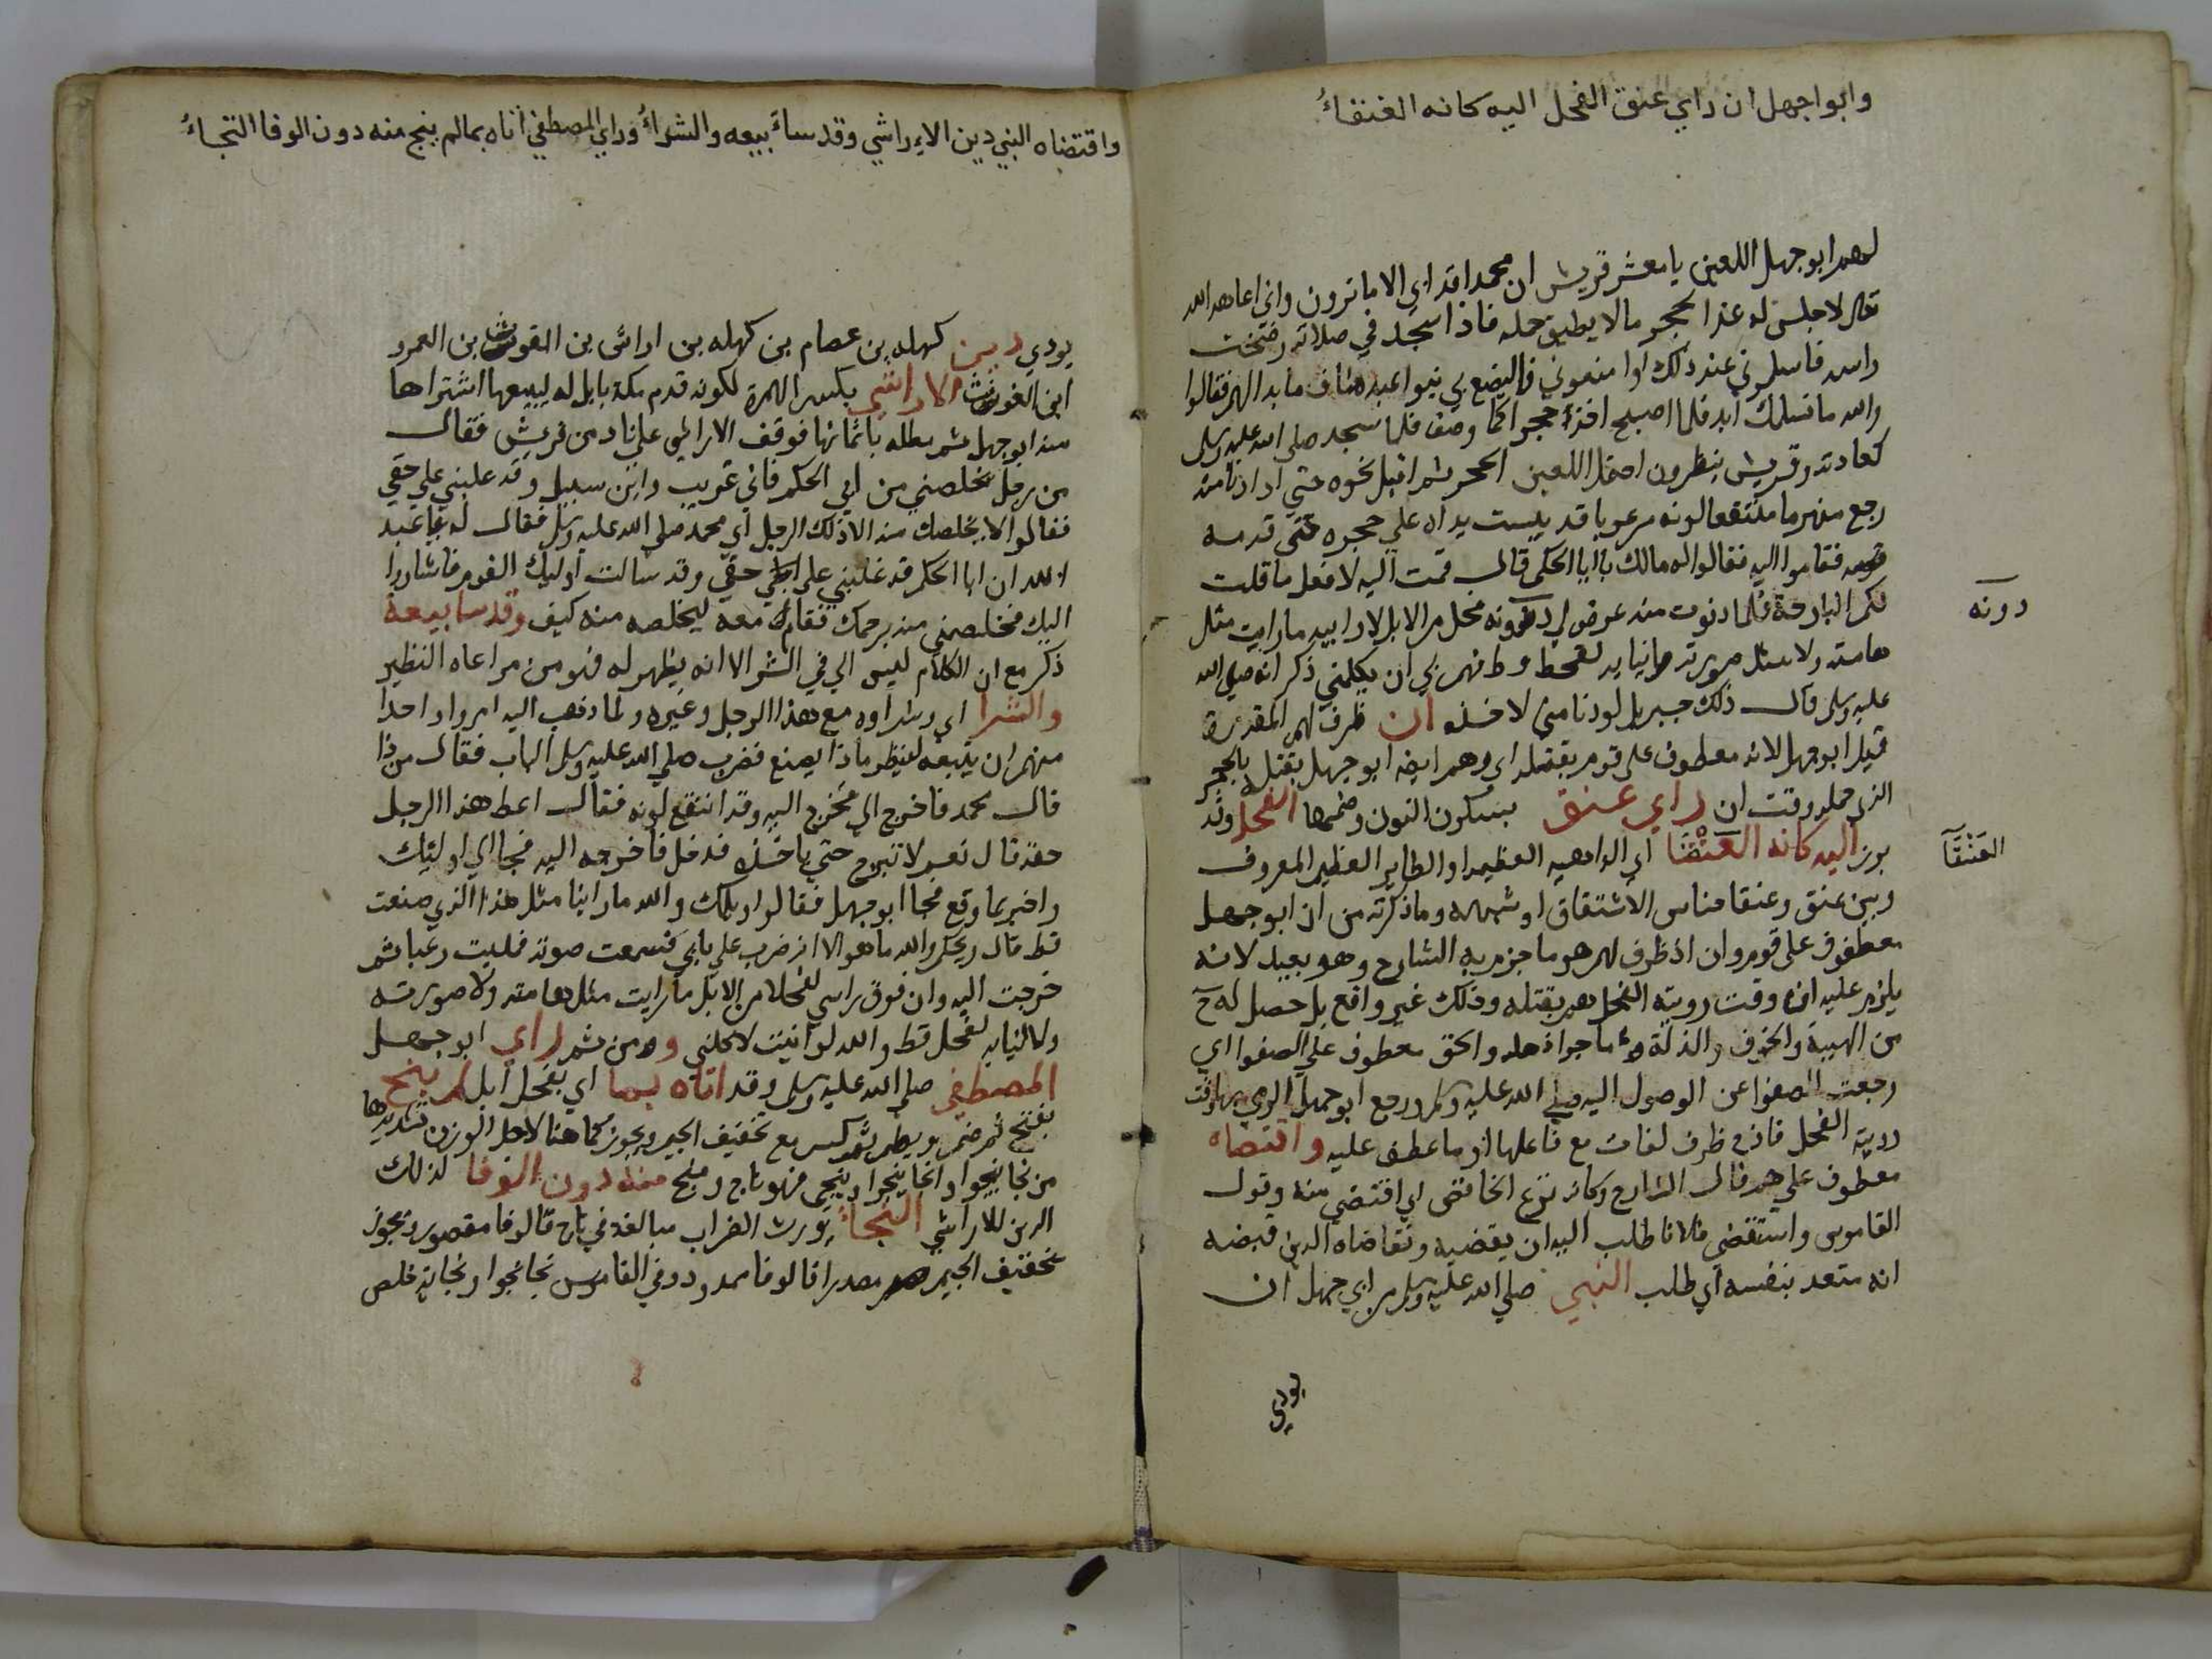 وابو اجهل ان راي عنق الفحل اليه كانه العنقاءُ
لهم ابو جهل اللعين يا معشر قريش ان محمدا قد ابي الا ما ترون واني اعاهد الله
لاجلسن له غدا بحجر ما لا يطيق حمله فاذا سجد في صلاته رضخت
راسه فاسلموني عند ذلك او امنعوني فاليضع بي بنوا عبد مناف ما بدا لهم فقالوا
والله ما نسلمك ابد فلما اصبح اخذ حجرا كما وصف فلما سجد صلي الله عليه وسلم
كعادته وقريش ينظرون احتمل اللعين الحجر ثم اقبل نحوه حتي اذا دنا منه
رجع منهزما منتقعا لونه مرعوبا قد يبست يداه علي حجره حتي قدمه
فقاموا اليه فقالوا له مالك يا ابا الحكم قال قمت اليه لافعل ما قلت
لكم البارحة فلما دنوت منه عرض لي دونه فحل من الابل لا وابيه ما رايت مثل
دونه
هامته ولا مثل صورته ولا انيابه لفحل قط فهم بي ان يكلمني ذكر انه صلي الله
عليه وسلم قال ذلك جبريل لو دنا مني لاخذه ان ظرف لهم المقدرة
قبل ابو جهل لانه معطوف على قوم بقتله اي وهم ايضا ابو جهل بقتله بالحجر
الذي حمله وقت ان راي عنق بسكون النون وضمها الفحل وقد
برز اليه كانه العَنْقَا اي الداهيه العظيمه او الطاير العظيم المعروف
العَنْقَآ
وبين عنق وعنقا جناس الاشتقاق او شبهه وما ذكرته من ان ابو جهل
معطوف على قوم وان اذ ظرف لهم هو ما جزم به الشارح وهو بعيد لانه
يلزم عليه انه وقت روية الفحل هم بقتله وذلك غير واقع بل حصل له ح
من الهيبة والخوف والذلة ما جرا له والحق معطوف علي الصفوا اي
رجعت الصفوا عن الوصول اليه صلي الله عليه وسلم ورجع ابو جهل الرمي بها وقت
روية الفحل فاذن ظرف لفات مع فاعلها او ما عطف عليه واقتضاه
معطوف علي هم قال الشارح وكانه نزع الخافض اي اقتضي منه وقول
القاموس واستقضي فلانا طلب اليه ان يقضيه وتقاضاه الدين قبضه
انه متعد بنفسه اي طلب النبي صلي الله عليه وسلم من ابي جهل ان
يودي
واقتضاه النبي دين الاراشي وقد ساءَ بيعه والشراءُ وراي المصطفي اتاه بمالم ينج منه دون الوفا النجاءُ
يودي دين كهله بن عصام بن كهله بن اراش بن الغوث بن العمرو
ابن الغوث الاراشي بكسر الهمزة لكونه قدم مكة بابل له ليبيعها اشتراها
منه ابو جهل ثم مطله باثمانها فوقف الاراشي علي ناد من قريش فقال
من رجل يخلصني من ابي الحكم فاني غريب وابن سبيل وقد غلبني علي حقي
فقالوا لا يخلصك منه الا ذلك الرجل اي محمد صلي الله عليه وسلم فقال له يا عبد
الله ان ابا الحكم قد غلبني علي حقي وقد سالت اوليك القوم فاشاروا
اليك فخلصني منه يرحمك فقام معه ليخلصه منه كيف وقد سا بيعه
ذكر مع ان الكلام ليس الي في الشرا الا انه يظهر له فهو من مراعاه النظير
والشرا اي وشراوه مع هذا الرجل وغيره ولما ذهب اليه امروا واحدا
منهم ان يتبعه لينظر ماذا يصنع فضرب صلي الله عليه وسلم الباب فقال من ذا
قال محمد فاخرج الي فخرج اليه وقد انتقع لونه فقال اعط هذا الرجل
حقه قال نعم لا تبرح حتي ياخذه فدخل فاخرجه اليه فجا اي اوليك
واخبر بما وقع فجا ابو جهل فقالوا ويلك والله ما راينا مثل هذا الذي صنعت
قط قال ويحكم والله ما هو الا ان ضرب علي بابي فسمعت صوته فمليت رعبا ثم
خرجت اليه وان فوق راسي لفحلا من الابل ما رايت مثل هامته ولا صورته
ولا انيابه لفحل قط والله لو ابيت لاكلني ومن ثم راي ابو جهل
المصطفي صلي الله عليه وسلم وقد اتاه بما اي بفحل ابل لم ينج
بفتح ثم ضم وبضم ثم كسر مع تخفيف الجيم ويجوز كما هنا لاجل الوزن تشديدها
من نجا ينجوا وانجا ينجوا وينجي فهو ناج ومنج منه دون الوفا لذلك
الدين للاراشي النجاءُ يورث الضراب مبالغه في ناج قالوفا مقصور ويجوز
تخفيف الجيم مصدر فالوفا ممدود وفي القاموس نجا نجوا ونجاية خلص